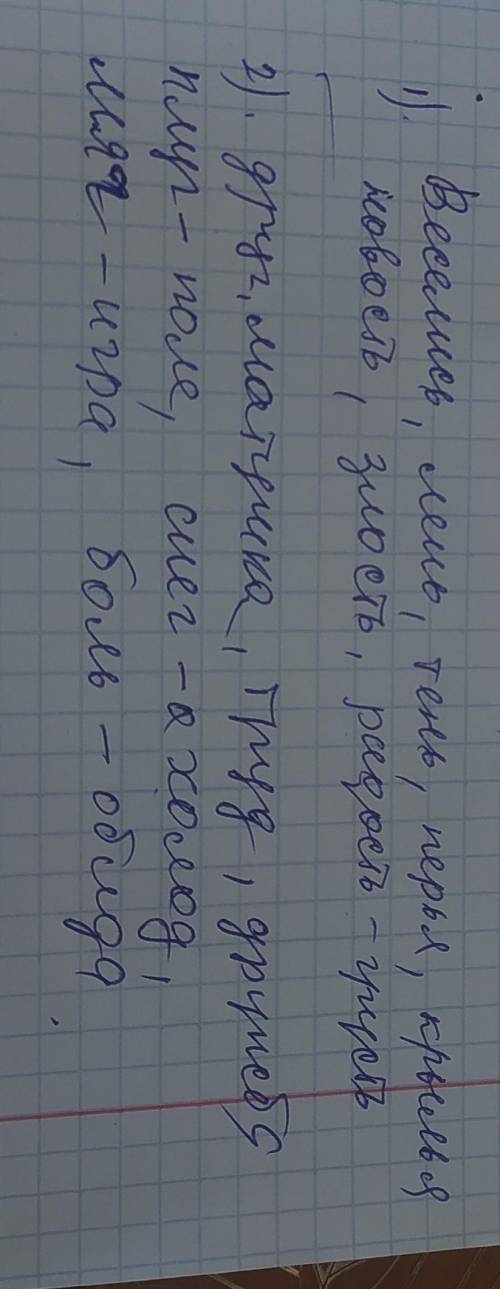 1). Веселись, лень, тень, перья, крылья
новость, злость, радость - грусть
2). друг, матушка, труд, дружба
плуг - поле, снег - холод,
мяч - игра, боль - обида.